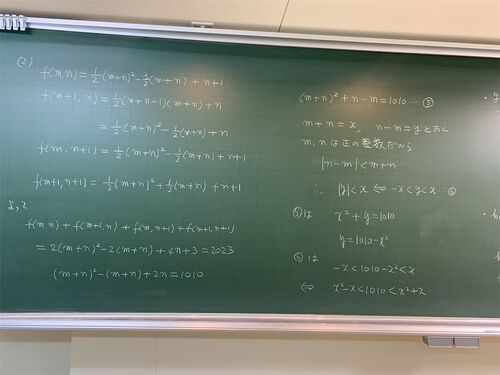 (2)
f(m,n) = 1/2(m+n)² - 3/2(m+n) + n+1
f(m+1, n) = 1/2(m+n-1)(m+n) + n
= 1/2(m+n)² - 1/2(m+n) + n
f(m, n+1) = 1/2(m+n)² - 1/2(m+n) + n+1
f(m+1, n+1) = 1/2(m+n)² + 1/2(m+n) + n+1
より
f(m,n) + f(m+1,n) + f(m,n+1) + f(m+1,n+1)
= 2(m+n)² - 2(m+n) + 4n+3 = 2023
(m+n)² - (m+n) + 2n = 1010
(m+n)² + n-m = 1010 … ⑤
m+n = x, n-m = y とおく
m, n は正の整数だから
|n-m| < m+n
∴ |y| < x ⇔ -x < y < x … ⑥
⑤は x² + y = 1010
y = 1010 - x²
⑥は
-x < 1010 - x² < x
⇔ x² - x < 1010 < x² + x